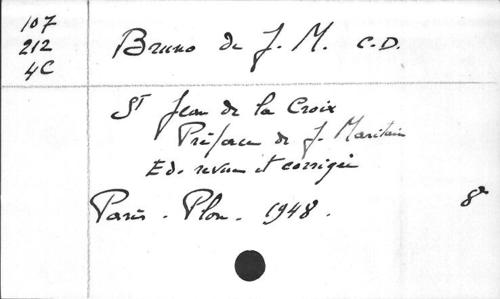 107
212
4C
Bruno de J. M. C.D.
St Jean de la Croix
Préface de J. Maritain
Ed. revue et corrigée
Paris - Plon - 1948.
8°